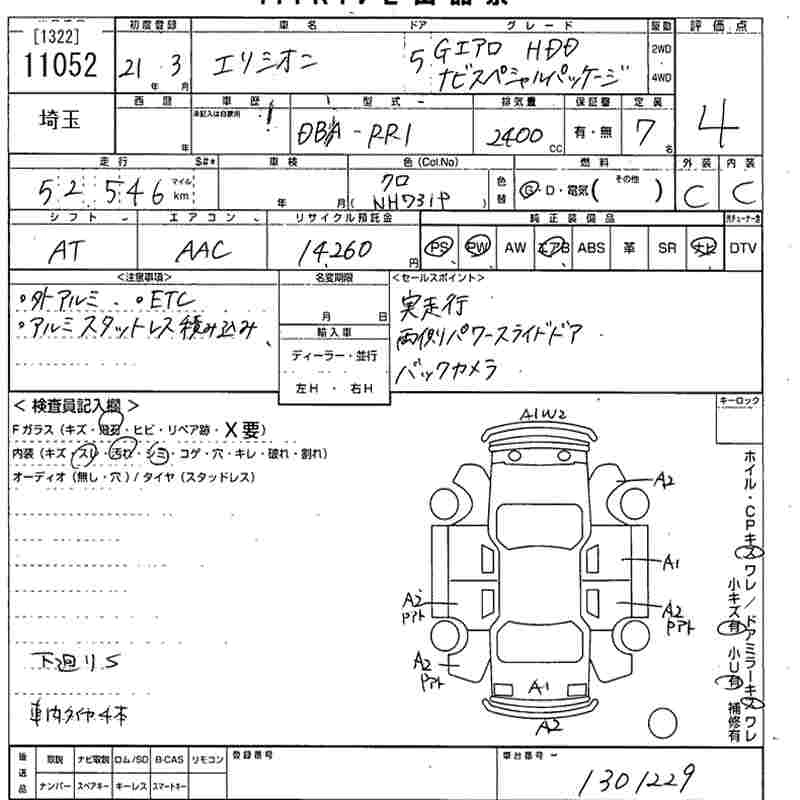 [1322]
11052
初度登録
21年 3月
車名
エリシオン
ドア
5
グレード
Gエアロ HDD
ナビスペシャルパッケージ
駆動
2WD
4WD
評価点
4
埼玉
西暦
年
車歴
未記入は自家用
型式
DBA-RR1
排気量
2400 CC
保証書
有・無
定員
7名
走行
52546
マイル
km
S#*
車検
年 月
色(Col.No)
クロ
(NH731P)
色替
燃料
G・D・電気(その他)
外装
C
内装
C
シフト
AT
エアコン
AAC
リサイクル預託金
14,260円
純正装備品
PS PW AW エアB ABS 革 SR ナビ DTV
<注意事項>
・外アルミ、・ETC
・アルミスタットレス積み込み、
名変期限
月 日
輸入車
ディーラー・並行
左H・右H
<セールスポイント>
実走行
両側パワースライドドア
バックカメラ
<検査員記入欄>
Fガラス(キズ・飛石・ヒビ・リペア跡・X要)
内装(キズ・スレ・汚れ・シミ・コゲ・穴・キレ・破れ・割れ)
オーディオ(無し・穴)/タイヤ(スタッドレス)
下廻りS
車内タイヤ4本
キーロック
A1W2
A2
A1
A2
Pアト
A2
Pアト
A2
Pアト
A1
A2
ホイル・CPキズ ワレ/ドアミラーキズ ワレ
小キズ有 小U有 補修有
後送品
取説 ナビ取説 ロム/SD B-CAS リモコン
ナンバー スペアキー キーレス スマートキー
登録番号
車台番号
1301229